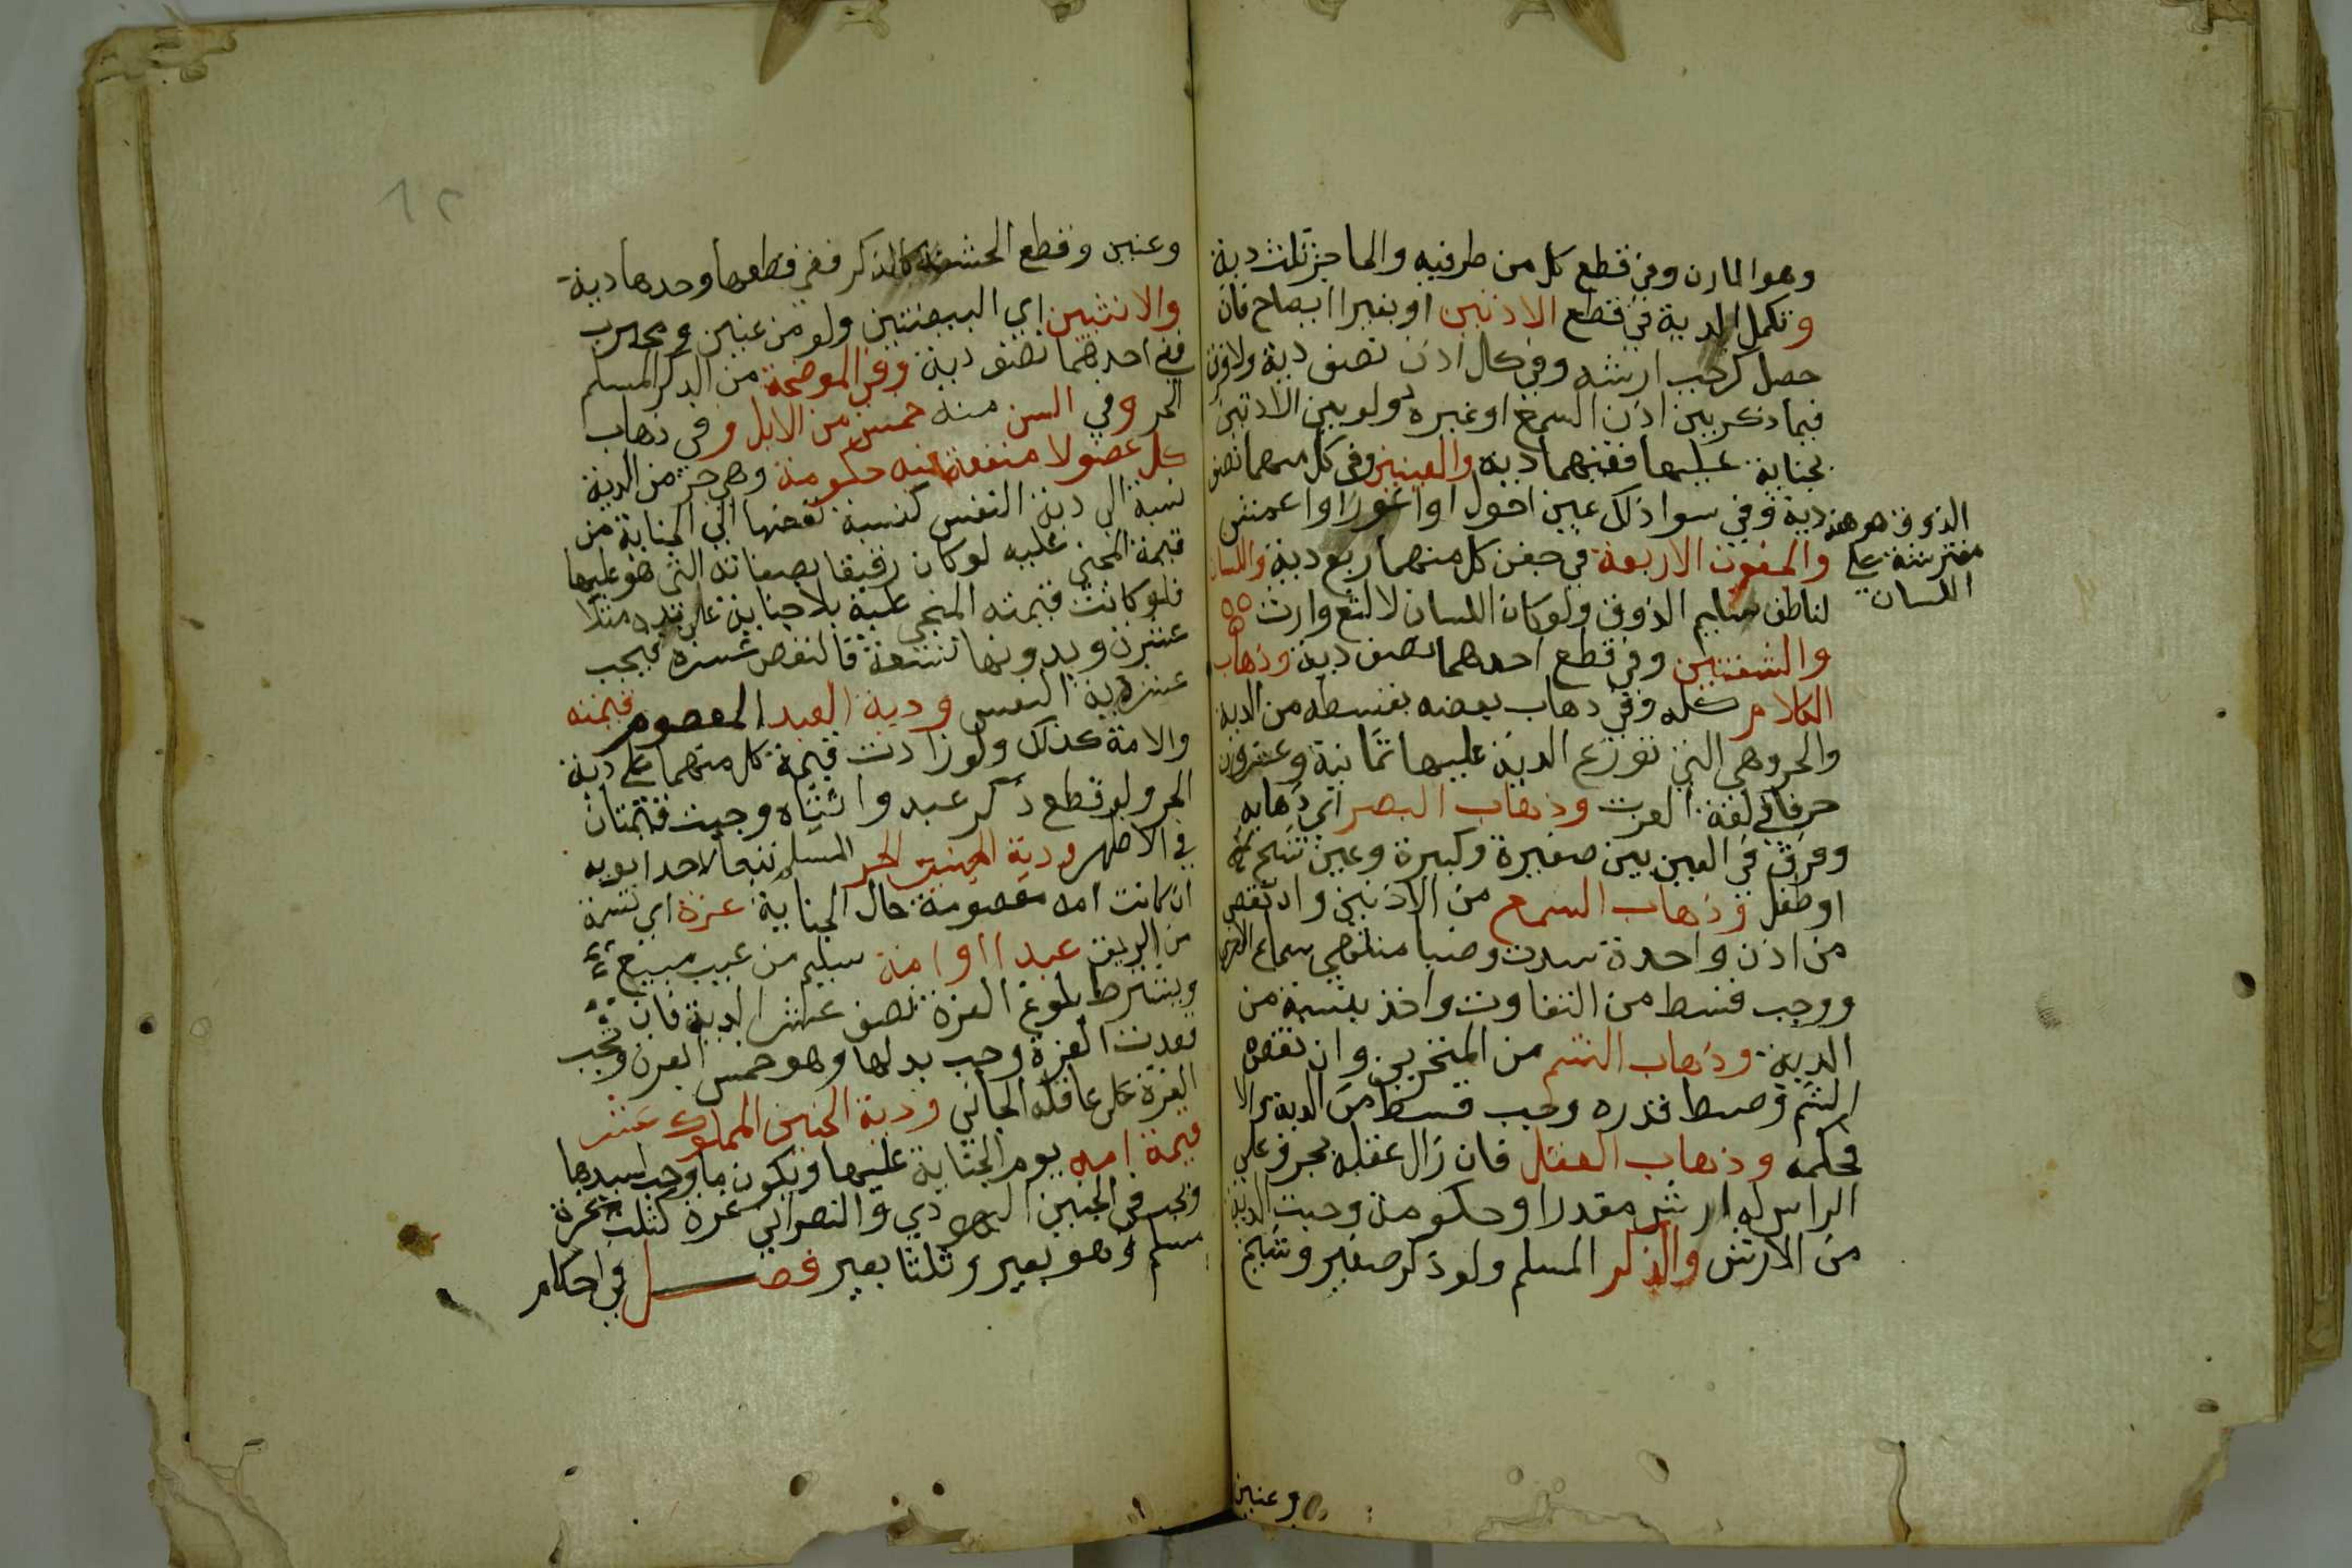 وهو المارن وفي قطع كل من طرفيه والحاجز ثلث دية
وتكمل الدية في قطع الاذنين او بغير ايضاح فان
حصل وجب ارشه وفي كل اذن نصف دية ولا فرق
فيما ذكر بين اذن السمع او غيره ولو يبس الاذنين
بجناية عليهما ففيهما دية والعينين وفي كل منهما نصف
دية وفي سوا ذلك عين احول او اعور او اعمش
والجفون الاربعة في جفن كل منهما ربع دية واللسان
لناطق سليم الذوق ولو كان اللسان لالثغ وارت
والشفتين وفي قطع احدهما نصف دية وذهاب
الكلام كله وفي ذهاب بعضه بقسطه من الدية
والحروف التي توزع الدية عليها ثمانية وعشرون
حرفا في لغة العرب وذهاب البصر اي ذهابه
وفرق في العين بين صغيرة وكبيرة وعين شيخ
او طفل وذهاب السمع من الاذنين وان نقص
من اذن واحدة سدت وضبط منتهي سماع الاخري
ووجب قسط من التفاوت واخذ بنسبته من
الدية وذهاب الشم من المنخرين وان نقص
الشم وضبط قدره وجب قسط من الدية والا
فحكمة وذهاب العقل فان زال عقله بجرح علي
الراس له ارش مقدر او حكومة وجبت الدية
من الارش والذكر المسلم ولو ذكر صغير وشيخ
وعنين
الذوق هو هذه
مفترشة علي
اللسان
١٢
وعنين وقطع الحشفة كالذكر ففي قطعها وحدها دية
والانثيين اي البيضتين ولو من عنين ومجبوب
ففي احدهما نصف دية وفي الموضحة من الذكر المسلم
الحر وفي السن منه خمس من الابل وفي ذهاب
كل عضو لا منفعة فيه حكومة وهي جزء من الدية
نسبة الى دية النفس كنسبة نقصها اي الجناية من
قيمة المجني عليه لو كان رقيقا بصفاته التي هو عليها
فلو كانت قيمته المجني عليه بلا جناية على يده مثلا
عشرة وبدونها تسعة فالنقص عشره فيجب
عشر دية النفس ودية العبد المعصوم قيمته
والامة كذلك ولو زادت قيمة كل منهما على دية
الحر ولو قطع ذكر عبد وانثياه وجبت قيمتان
في الاظهر ودية الجنين الحر المسلم تبعا لاحد ابويه
ان كانت امه معصومة حال الجناية غرة اي نسمة
من الرقيق عبدا او امة سليم من عيب مبيع
ويشترط بلوغ الغرة نصف عشر الدية فان
فقدت الغرة وجب بدلها وهو خمس ابعرة وتجب
الغرة على عاقلة الجاني ودية الجنين المملوك عشر
قيمة امه يوم الجناية عليها ويكون ما وجب لسيدها
وتجب في الجنين اليهودي والنصراني غرة كثلث غرة
مسلم وهو بعير وثلثا بعير فصل في احكام